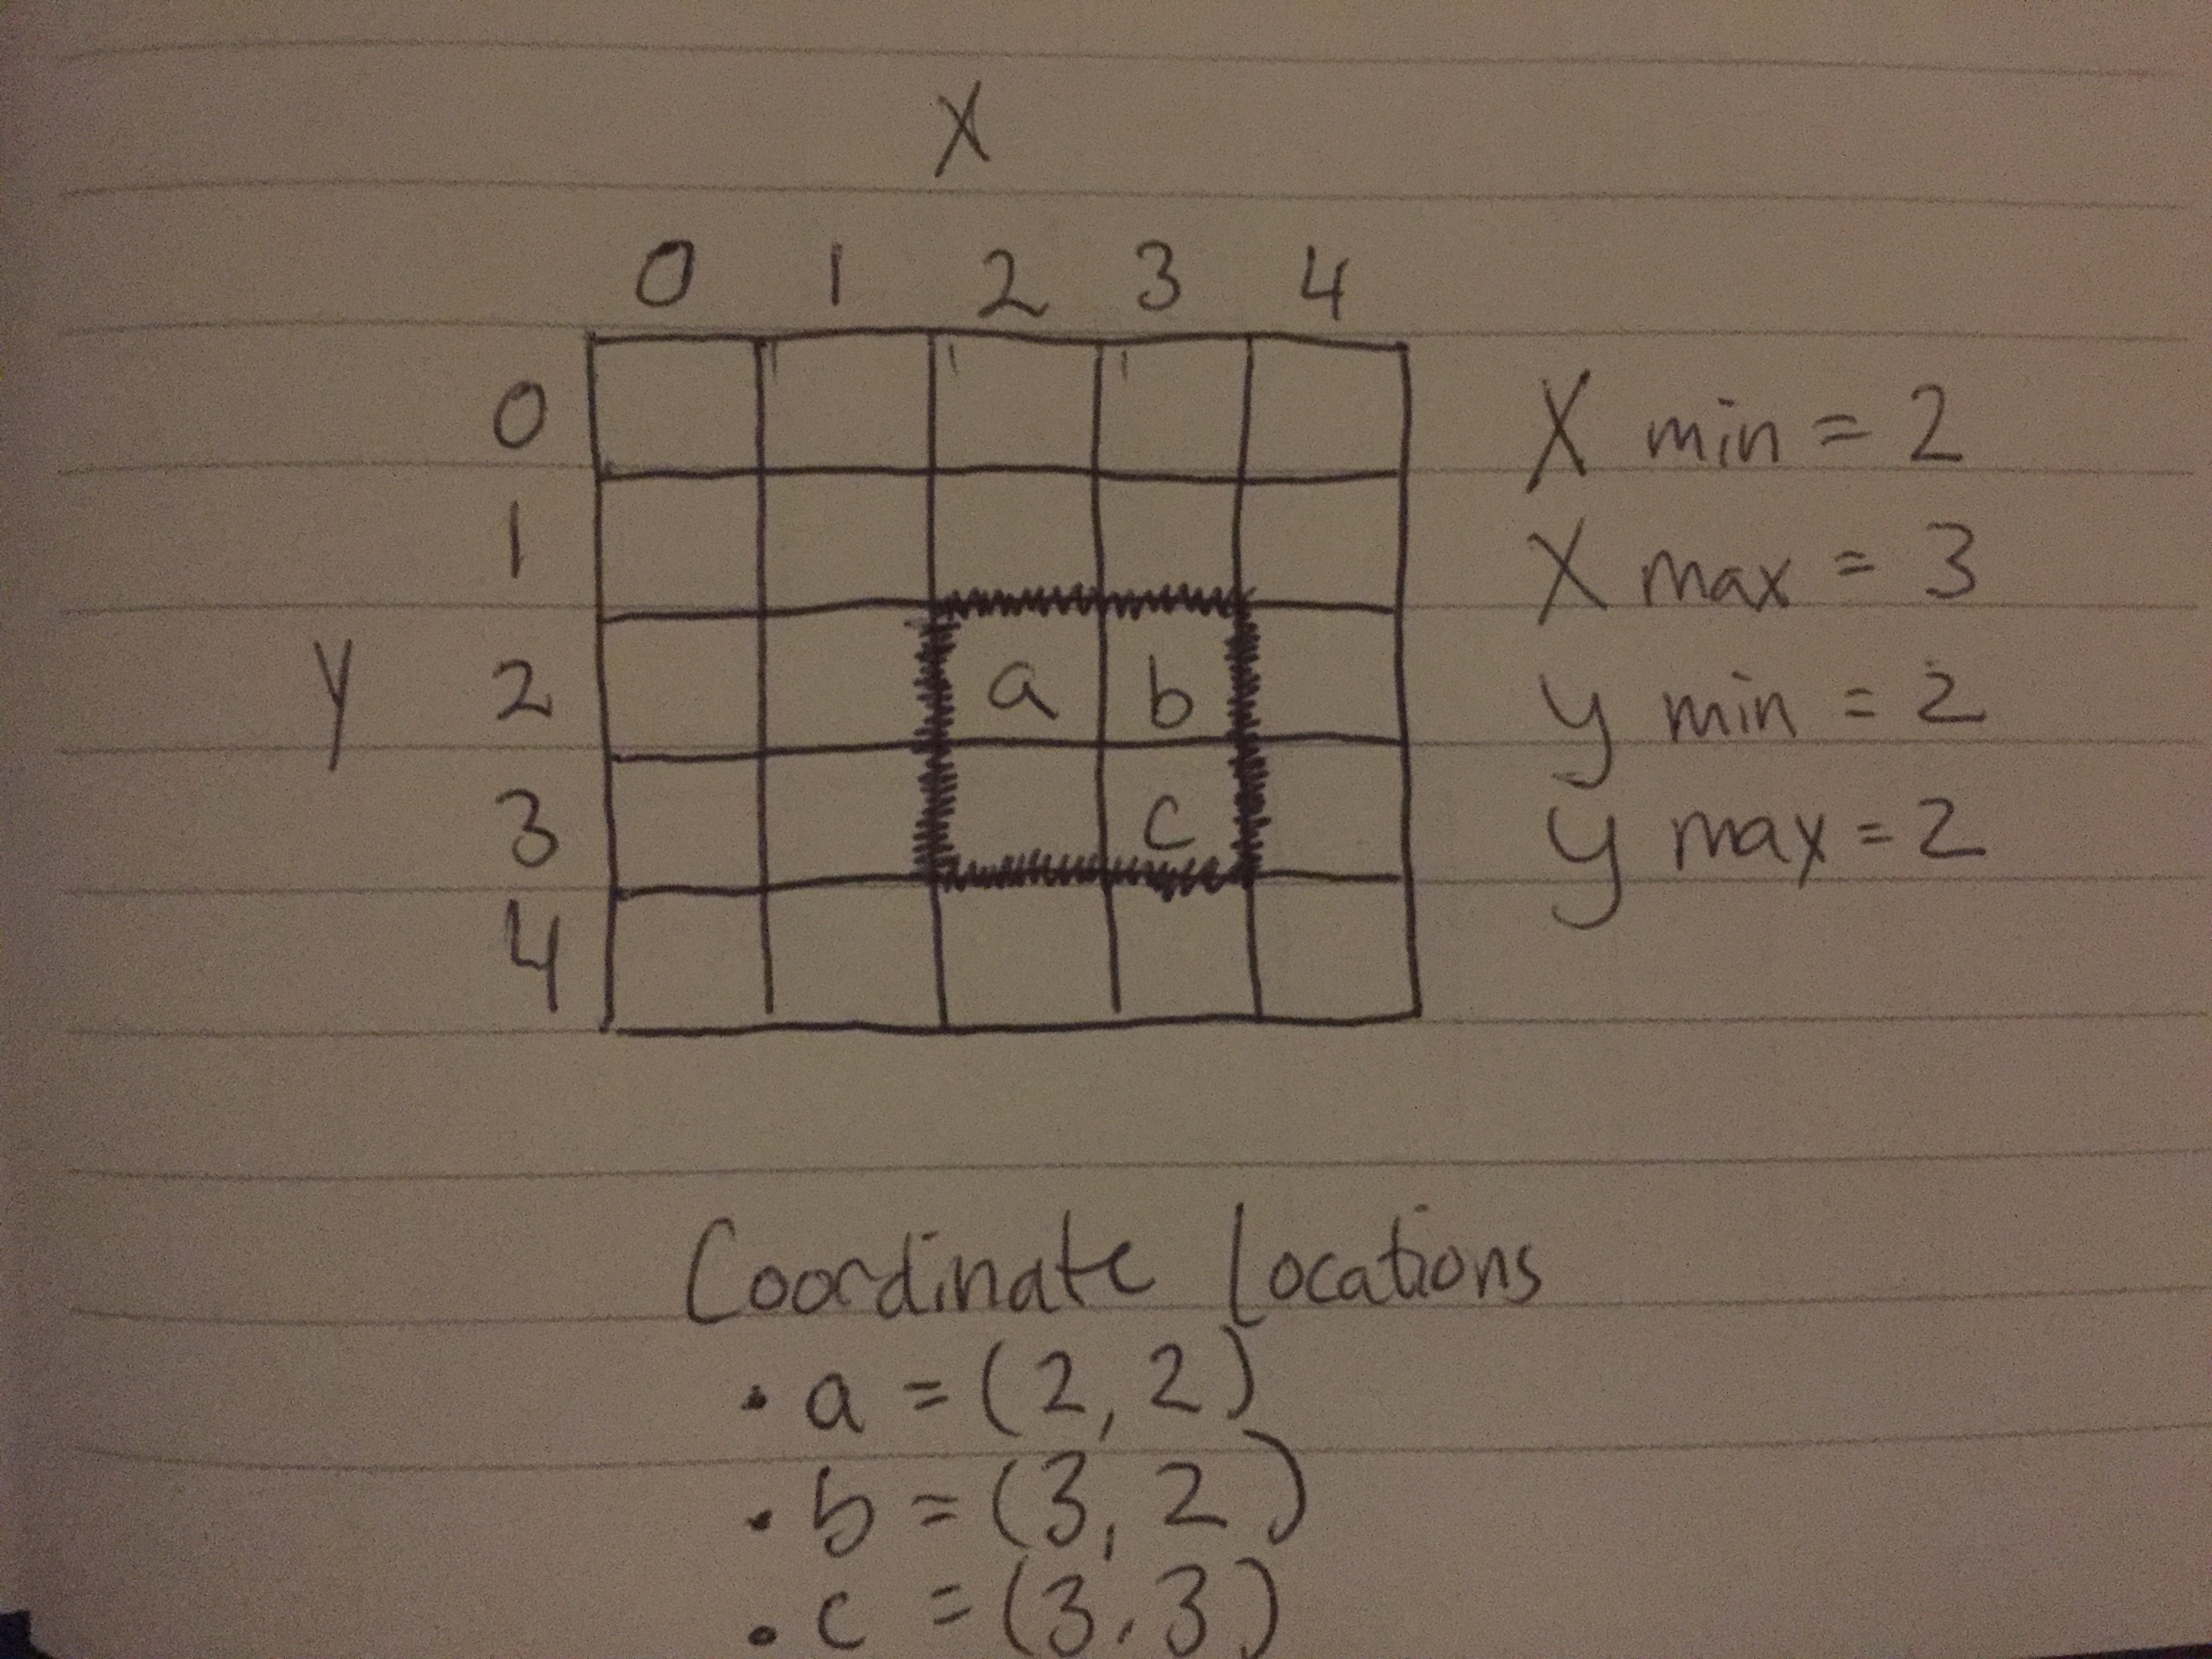 X
0 1 2 3 4
0
1
Y 2 a b
3 c
4
X min = 2
X max = 3
y min = 2
y max = 2
Coordinate Locations
• a = (2, 2)
• b = (3, 2)
• c = (3, 3)